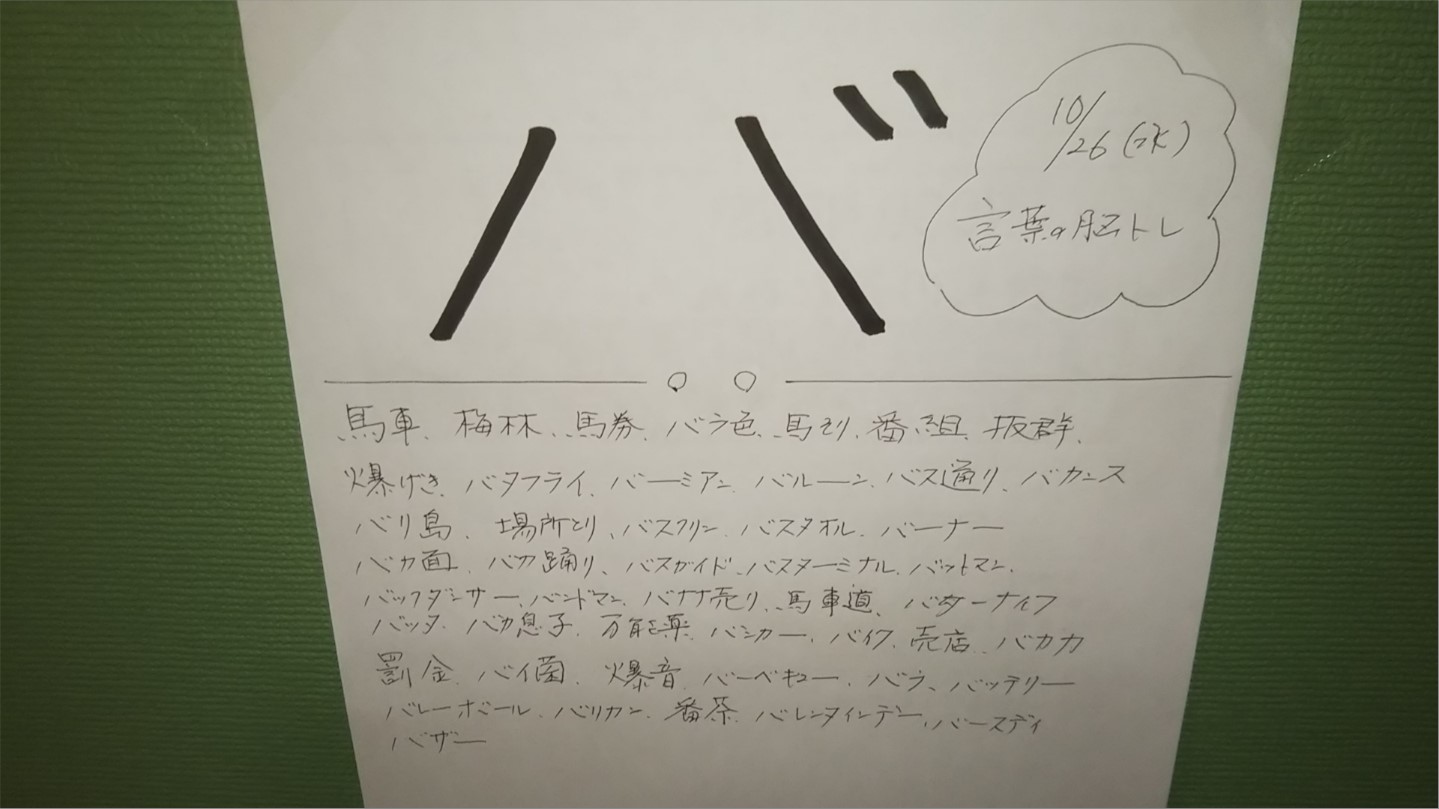 バ
10/26(水)
言葉の脳トレ
馬車、梅林、馬券、バラ色、馬そり、番組、抜群、
爆げき、バタフライ、バーミアン、バルーン、バス通り、バカンス
バリ島、場所とり、バスクリン、バスタオル、バーナー
バカ面、バカ踊り、バスガイド、バスターミナル、バットマン、
バックダンサー、バンドマン、バナナ売り、馬車道、バターナイフ
バッタ、バカ息子、万能薬、バンカー、バイク、売店、バカ力
罰金、バイ菌、爆音、バーベキュー、バラ、バッテリー
バレーボール、バリカン、番茶、バレンタインデー、バースディ
バザー